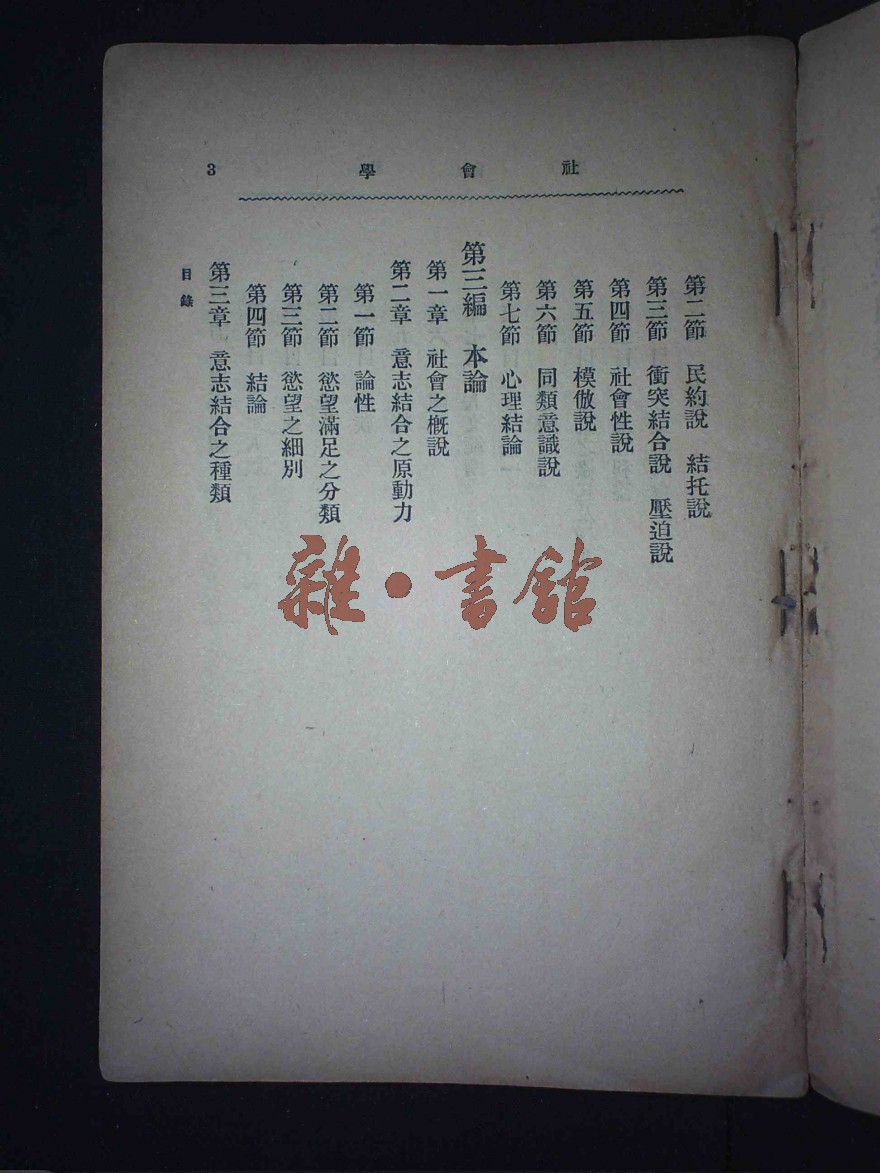 社會學
3
第二節 民約說 結托說
第三節 衝突結合說 壓迫說
第四節 社會性說
第五節 模倣說
第六節 同類意識說
第七節 心理結論
第三編 本論
第一章 社會之概說
第二章 意志結合之原動力
第一節 論性
第二節 慾望滿足之分類
第三節 慾望之細別
第四節 結論
第三章 意志結合之種類
目錄
雜·書館